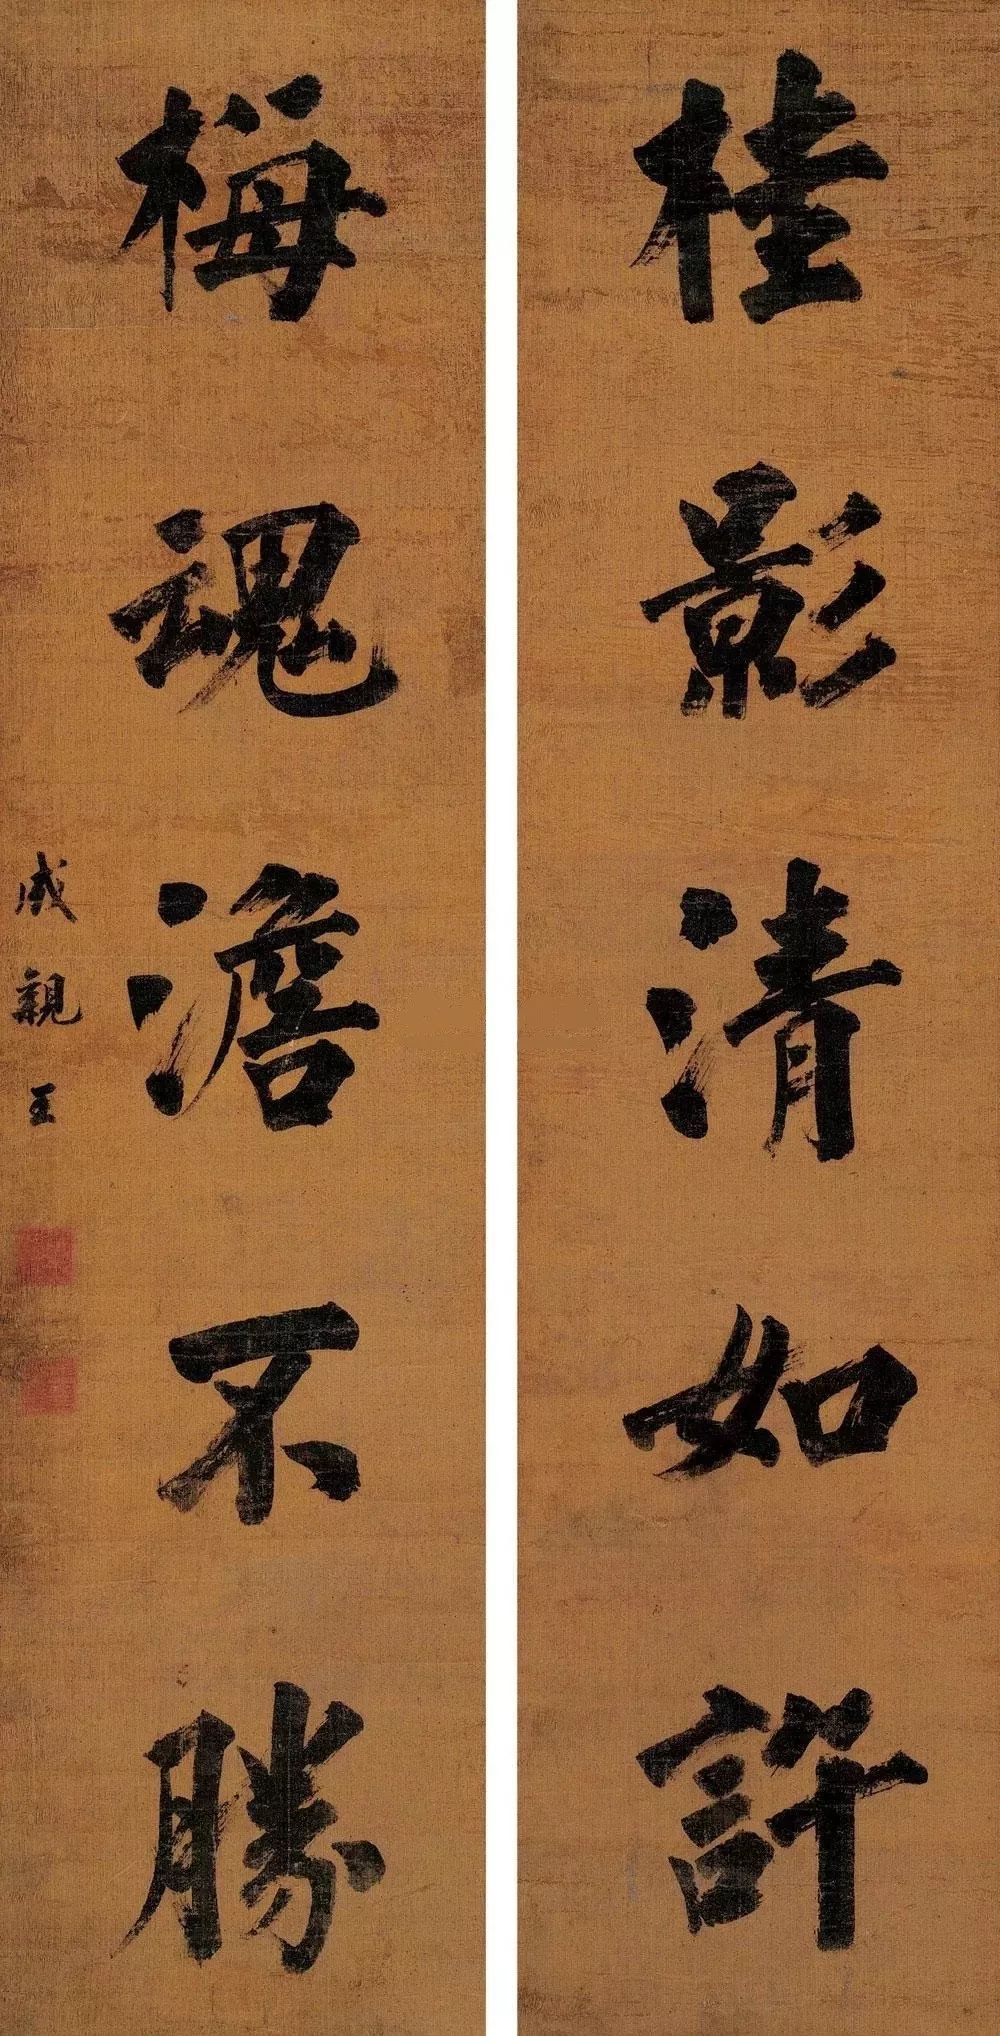 桂影清如許
梅魂澹不勝
成親王